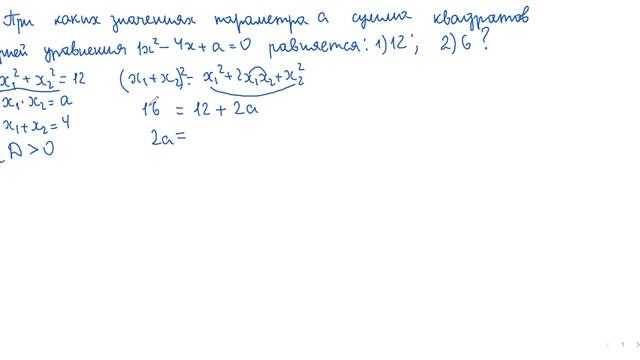 При каких значениях параметра a сумма квадратов
рней уравнения 1x² - 4x + a = 0 равняется: 1) 12; 2) 6 ?
x₁² + x₂² = 12 (x₁ + x₂)² = x₁² + 2x₁x₂ + x₂²
x₁ · x₂ = a 16 = 12 + 2a
x₁ + x₂ = 4 2a =
D > 0